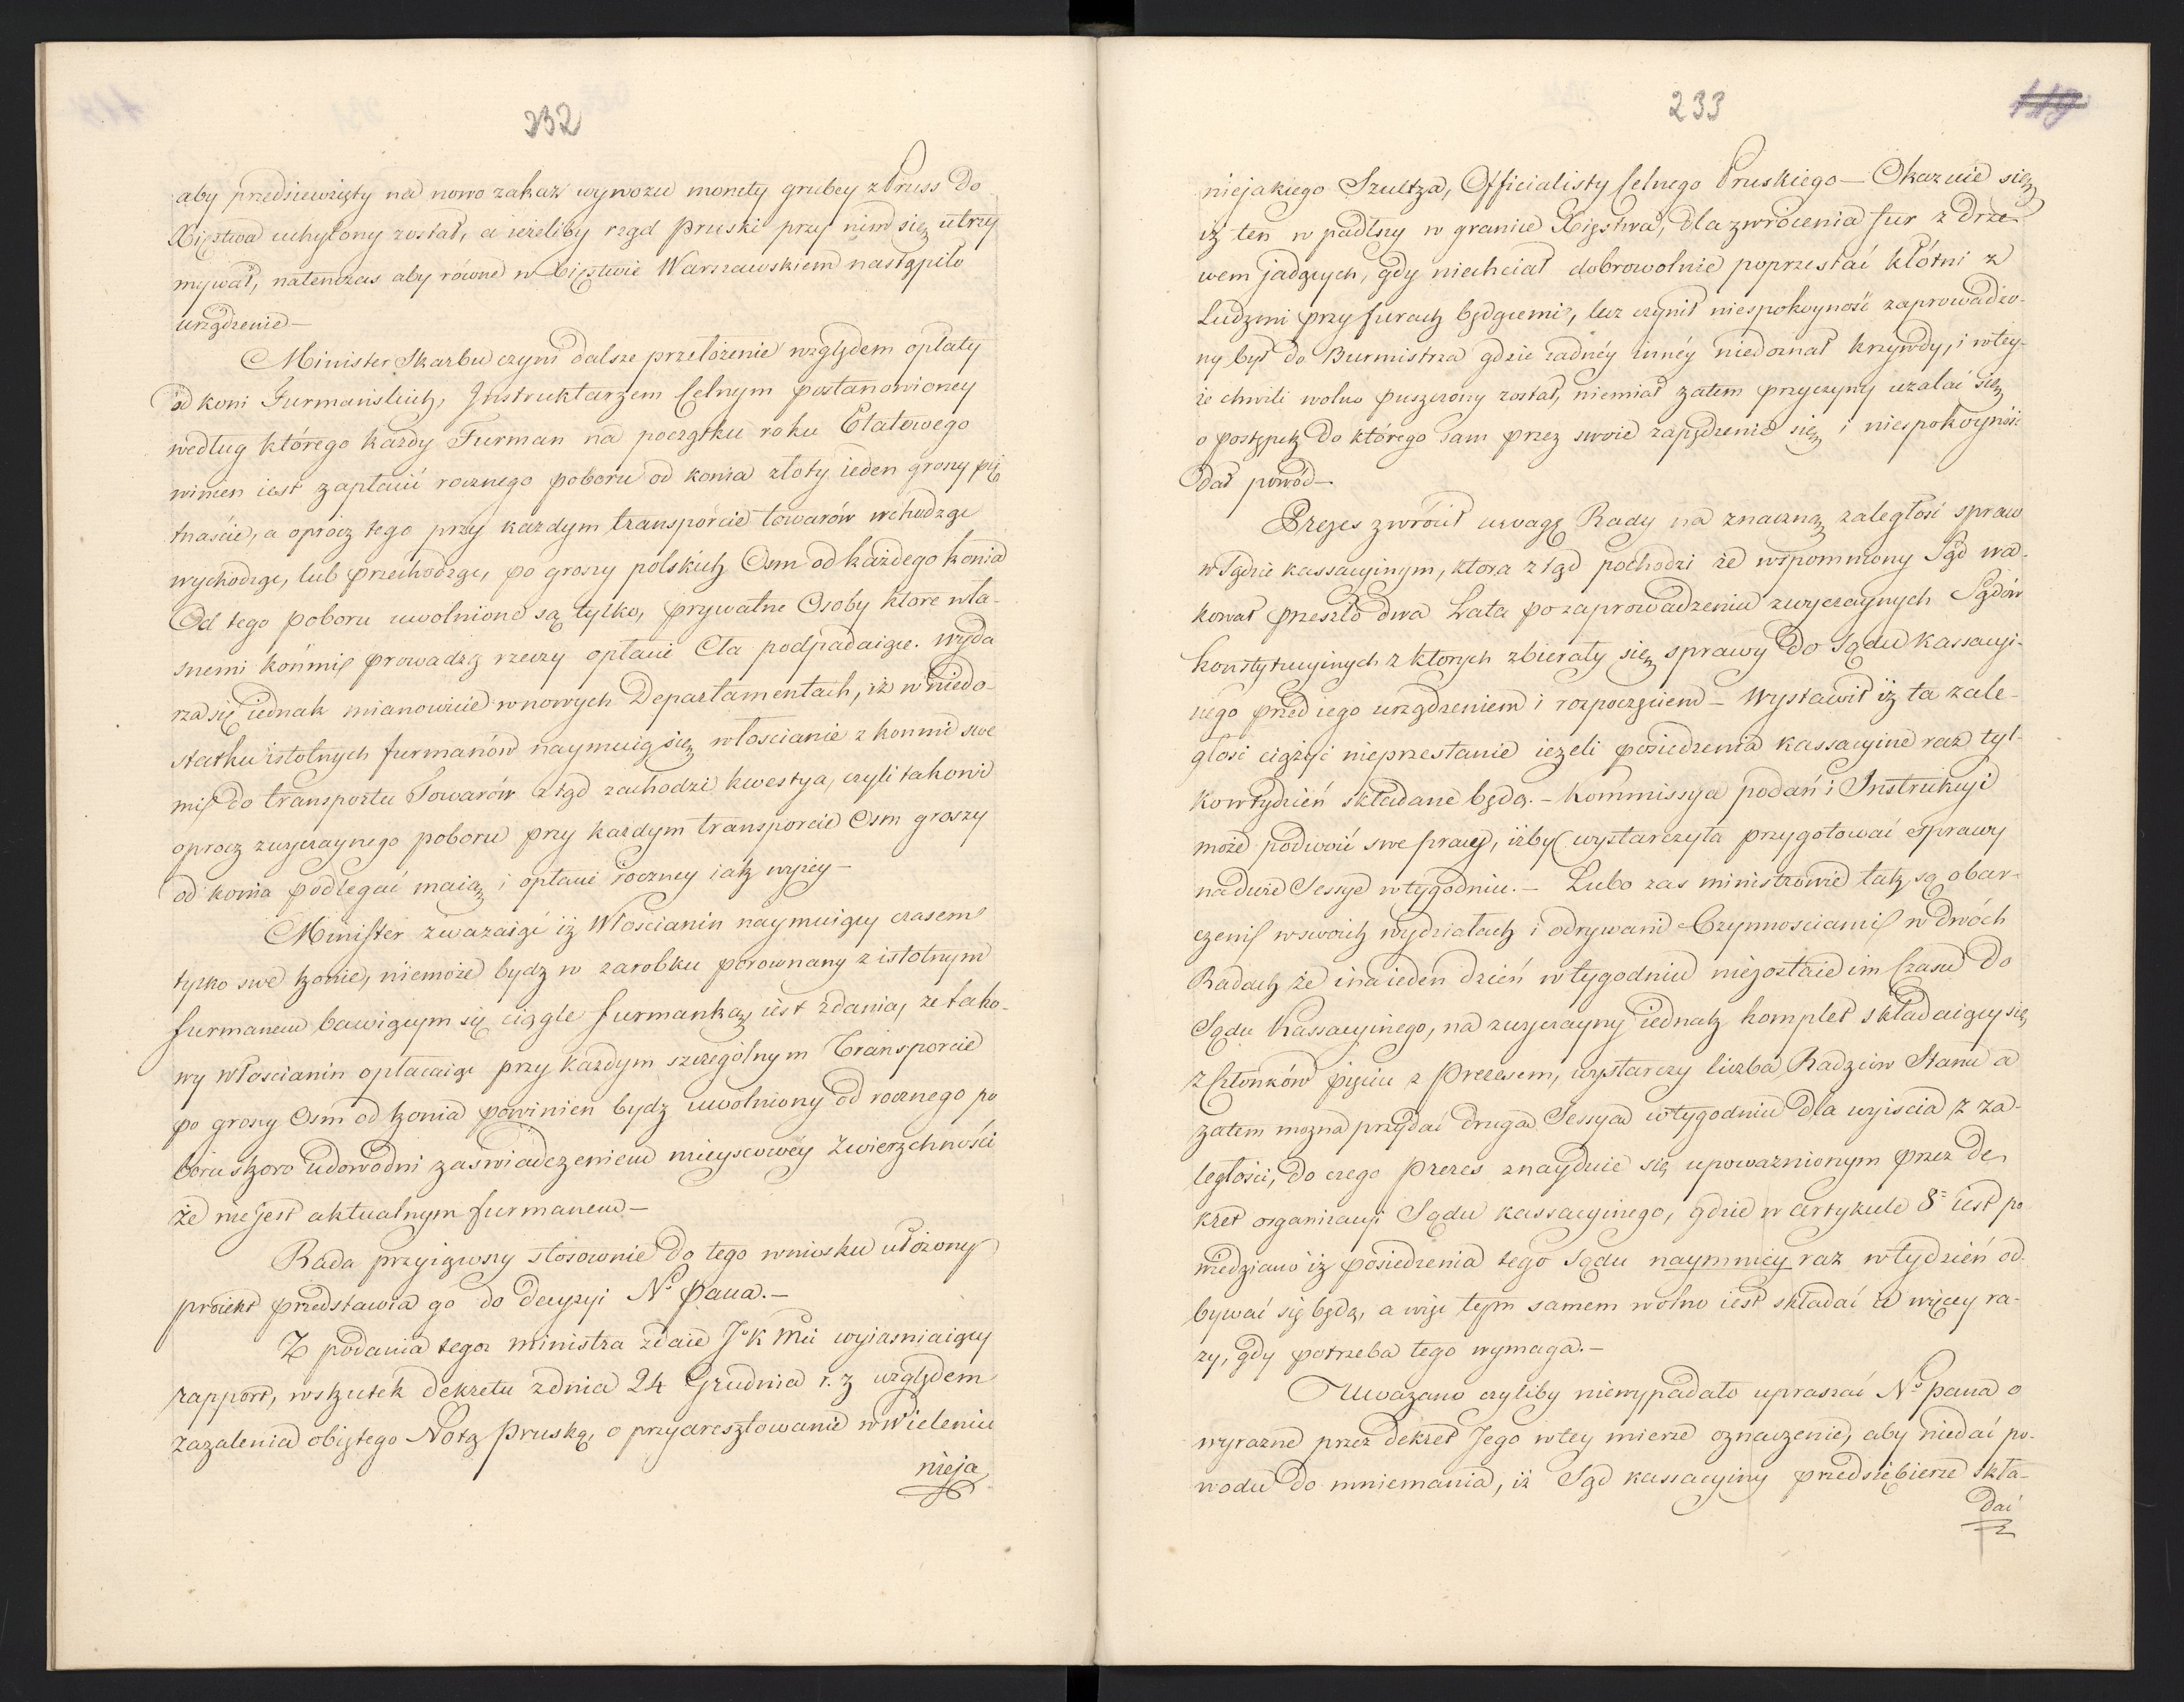 232
aby przedsiewzięty na nowo zakaz wywozu monety grubey z Pruss do
Xięstwa uchylony został, a ieżeliby rząd pruski przy nim się utrzy
mywał, natenczas aby równe w Xięztwie Warszawskiem nastąpiło
urządzenie —
Minister Skarbu czyni dalsze przełożenie względem opłaty
od koni Furmańskich, Instruktarzem Celnym postanowioney
według którego każdy Furman na początku roku Etatowego
winien iest zapłacić rocznego poboru od konia złoty ieden groszy pię
tnaście, a oprócz tego przy każdym transporcie towarów wchodząc
wychodząc, lub przechodząc, po groszy polskich Osm od każdego konia
Od tego poboru uwolnione są tylko, prywatne Osoby które wła-
snemi końmi prowadzą rzeczy opłacie Cła podpadaiące. Wyda
rza się iednak mianowicie w nowych Departamentach, iż w niedo-
statku istotnych furmanów naymuią się włościanie z konmi swe
mi do transportu Towarów ztąd zachodzi kwestya, czyli takowi
oprocz zwyczaynego poboru przy każdym transporcie Osm groszy
od konia podlegać maią i opłacie roczney iak wyżey —
Minister zważaiąc iż Włościanin naymuiący czasem
tylko swe konie, niemoże bydz w zarobku porownany z istotnym
furmanem bawiącym się ciągle furmanką, iest zdania, że tako-
wy włościanin opłacaiąc przy każdym szczególnym Transporcie
po groszy Osm od konia powinien bydz uwolniony od rocznego po
boru skoro udowodni zaświadczeniem mieyscowey Zwierzchności
że nie jest aktualnym furmanem —
Rada przyiąwszy stosownie do tego wniosku ułożony
proiekt przedstawia go do decyzyi No Pana. —
Z podania tegoż ministra zdaie J. K Mci wyiasniaiący
rapport, wskutek dekretu zdnia 24 Grudnia r. z względem
zażalenia obiętego Notą Pruską, o przyaresztowanie w Wieleniu
nieja
233
119
niejakiego Szultza, Officialisty Celnego Pruskiego — Okazuie się
iż ten wpadłszy w granice Xięstwa, dla zwrócenia fur z drze
wem jadących, gdy niechciał dobrowolnie poprzestać kłótni z
Ludzmi przy furach będącemi, lecz czynił niespokoyność zaprowadzo-
ny był do Burmistrza gdzie żadnéy innéy niedoznał krzywdy, i wtey-
że chwili wolno puszczony został, niemiał zatem przyczyny użalać się
o postępek do którego sam przez swoie zapędzenie się i niespokoyność
dał powód —
Prezes zwrócił uwagę Rady na znaczną zaległość spraw
w Sądzie kassacyinym, ktora ztąd pochodzi że wspomniony Sąd wa-
kował przeszło dwa Lata po zaprowadzeniu zwyczaynych Sądów
konstytucyinych z ktorych zbierały się sprawy do Sądu Kassacyi-
nego przed iego urządzeniem i rozpoczęciem — Wystawił iż ta zale-
głość ciążyć nieprzestanie ieżeli posiedzenia kassacyine raz tyl-
ko w tydzień składane będą. — Kommissya podań i Instrukcyi
może podwoić swe prace, iżby wystarczyła przygotować sprawy
na dwie Sessye w tygodniu. — Lubo zas ministrowie tak są obar-
czeni w swoich wydziałach i odrywani Czynnościami w dwóch
Radach że i na ieden dzień w tygodniu niezostaie im Czasu do
Sądu Kassacyinego, na zwyczayny iednak komplet składaiący się
z Członków pięciu z Prezesem, wystarczy liczba Radzców Stanu a
zatem można przydać druga Sessya w tygodniu dla wyiscia z za-
ległości, do czego Prezes znayduie się upoważnionym przez de
kret organizacyi Sądu kassacyinego, gdzie w artykule 8= iest po
wiedziano iż posiedzenia tego Sądu naymniey raz w tydzień od
bywać się będą, a więc tym samem wolno iest składać ie więcey ra-
zy, gdy potrzeba tego wymaga. —
Uważano czyliby niewypadało upraszać No pana o
wyrazne przez dekret Jego w tey mierze oznaczenie, aby niedać po-
wodu do mniemania, iż Sąd kassacyiny przedsiębierze skła-
dać